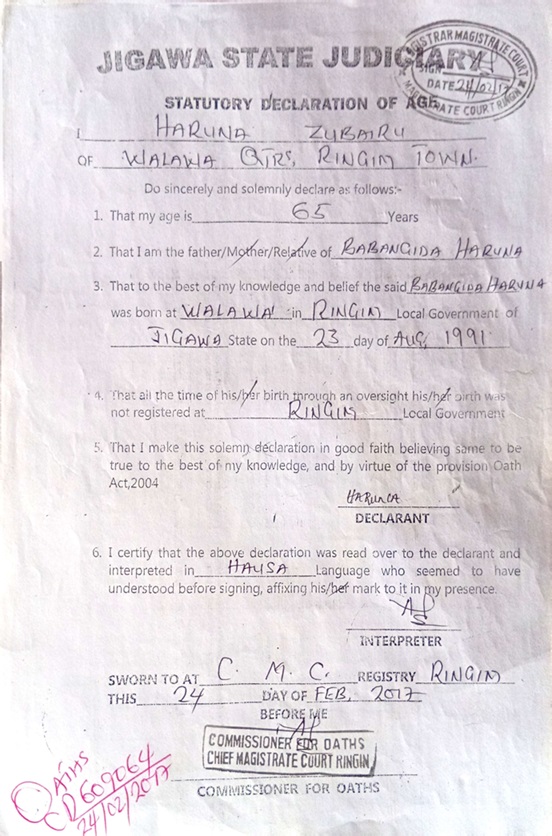 REGISTRAR MAGISTRATE COURT
SIGN
DATE 24/02/17
MAGISTRATE COURT RINGIM
JIGAWA STATE JUDICIARY
STATUTORY DECLARATION OF AGE
I HARUNA ZUBAIRU
OF WALAWA QTRS, RINGIM TOWN.
Do sincerely and solemnly declare as follows:-
1. That my age is 65 Years
2. That I am the father/Mother/Relative of BABANGIDA HARUNA
3. That to the best of my knowledge and belief the said BABANGIDA HARUNA
was born at WALAWA in RINGIM Local Government of
JIGAWA State on the 23 day of AUG, 1991.
4. That all the time of his/her birth through an oversight his/her birth was
not registered at RINGIM Local Government
5. That I make this solemn declaration in good faith believing same to be
true to the best of my knowledge, and by virtue of the provision Oath
Act,2004
HARUNA
DECLARANT
6. I certify that the above declaration was read over to the declarant and
interpreted in HAUSA Language who seemed to have
understood before signing, affixing his/her mark to it in my presence.
INTERPRETER
SWORN TO AT C. M. C. REGISTRY RINGIM
THIS 24 DAY OF FEB, 2017
BEFORE ME
COMMISSIONER FOR OATHS
CHIEF MAGISTRATE COURT RINGIM
COMMISSIONER FOR OATHS
OATHS
CR609064
24/02/2017